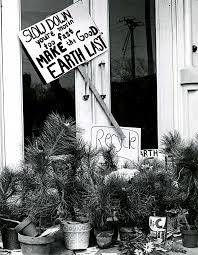 SLOW DOWN
you're movin
too fast
MAKE the Good
EARTH LAST
Recycle
EARTH